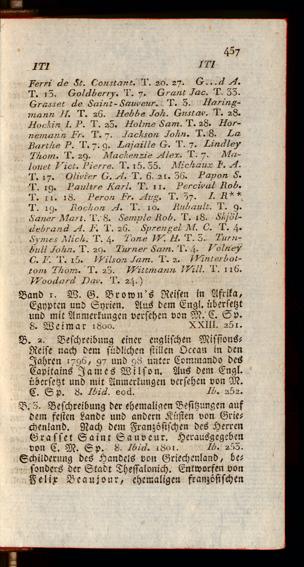 457
ITI ITI
Ferri de St. Constant. T. 20. 27. G...d A.
T. 13. Goldberry. T. 7. Grant Jac. T. 33.
Grasset de Saint-Sauveur. T. 3. Haring-
mann H. T. 26. Hebbe Joh. Gustav. T. 28.
Hockin I. P. T. 23. Holme Sam. T. 28. Hor-
nemann Fr. T. 7. Jackson John. T. 8. La
Barthe P. T. 7. 9. Lajaille G. T. 7. Lindley
Thom. T. 29. Mackenzie Alex. T. 7. Ma-
lonet Vict. Pierre. T. 15. 35. Michaux F. A.
T. 17. Olivier G. A. T. 6. 21. 36. Papon S.
T. 19. Paultre Karl. T. 11. Percival Rob.
T. 11. 18. Peron Fr. Aug. T. 37. I. R**
T. 19. Rochon A. T. 10. Rubault. T. 9.
Saner Mart. T. 8. Semple Rob. T. 18. Skjöl-
debrand A. F. T. 26. Sprengel M. C. T. 4.
Symes Mich. T. 4. Tone W. H. T. 3. Turn-
bull John. T. 29. Turner Sam. T. 4. Volney
C. F. T. 15. Wilson Jam. T. 2. Winterbot-
tom Thom. T. 23. Wittmann Will. T. 116.
Woodard Dav. T. 24.)
Band 1. W. G. Brown's Reisen in Afrika,
Egypten und Syrien. Aus dem Engl. übersetzt
und mit Anmerkungen versehen von M. C. Sp.
8. Weimar 1800. XXIII. 251.
B. 2. Beschreibung einer englischen Missions-
Reise nach dem südlichen stillen Ocean in den
Jahren 1796, 97 und 98 unter Commando des
Capitains James Wilson. Aus dem Engl.
übersetzt und mit Anmerkungen versehen von M.
C. Sp. 8. Ibid. eod. Ib. 252.
B. 3. Beschreibung der ehemaligen Besitzungen auf
dem festen Lande und andern Küsten von Grie-
chenland. Nach dem Französischen des Herren
Grasset Saint Sauveur. Herausgegeben
von C. M. Sp. 8. Ibid. 1801. Ib. 253.
Schilderung des Handels von Griechenland, be-
sonders der Stadt Thessalonich. Entworfen von
Felix Beaujour, ehemaligen französischen